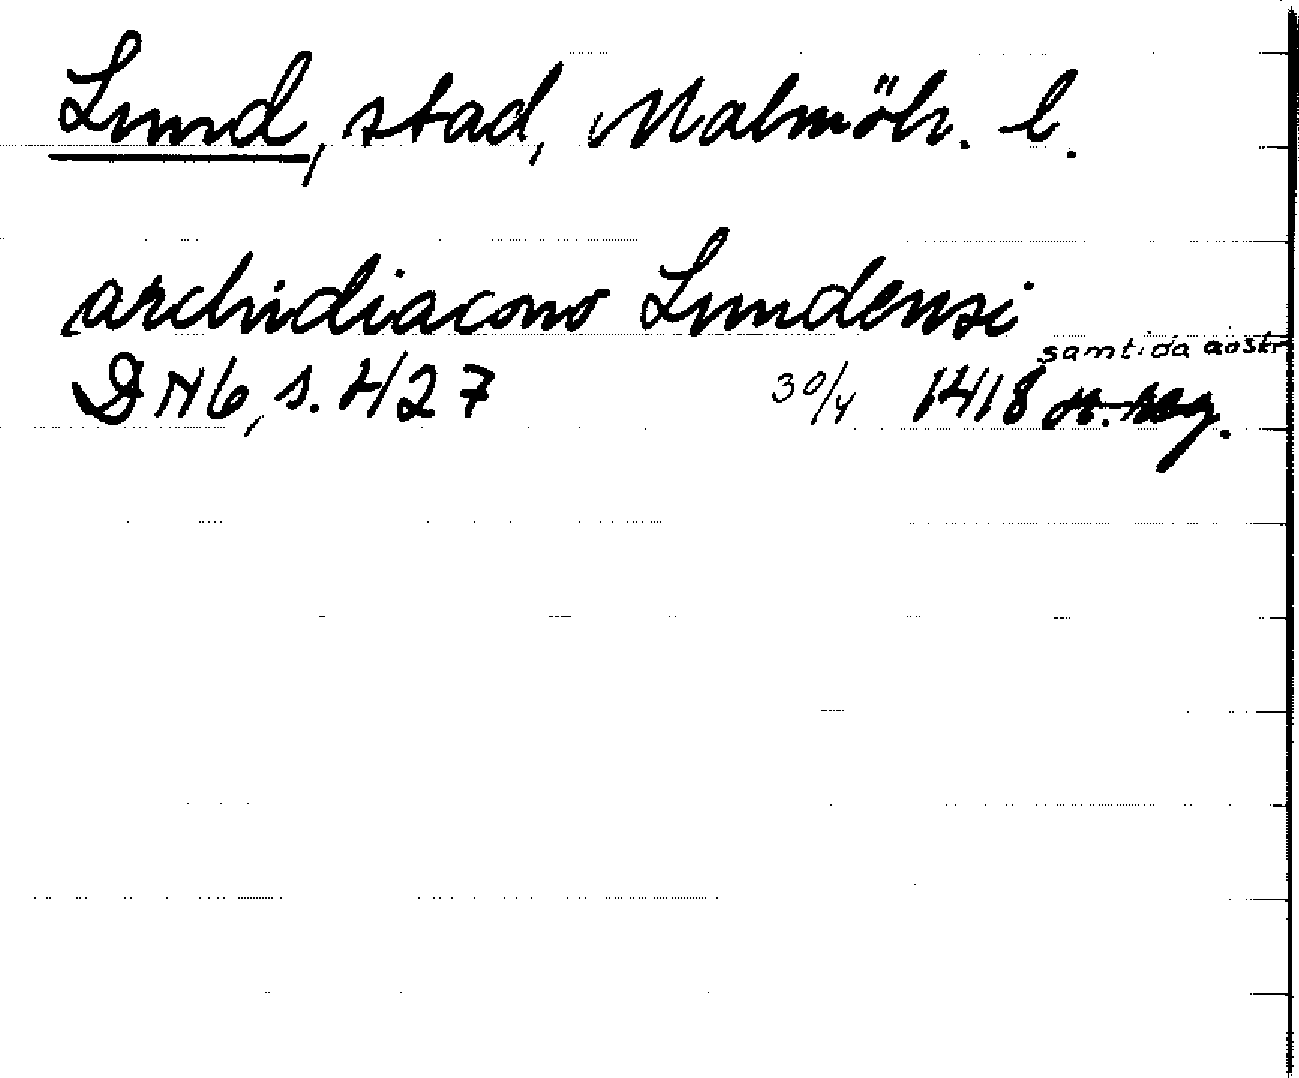 Lund, stad, Malmöh. l.
archidiacono Lundensi
samtida avskr
DN6, s. 427 30/4 1418